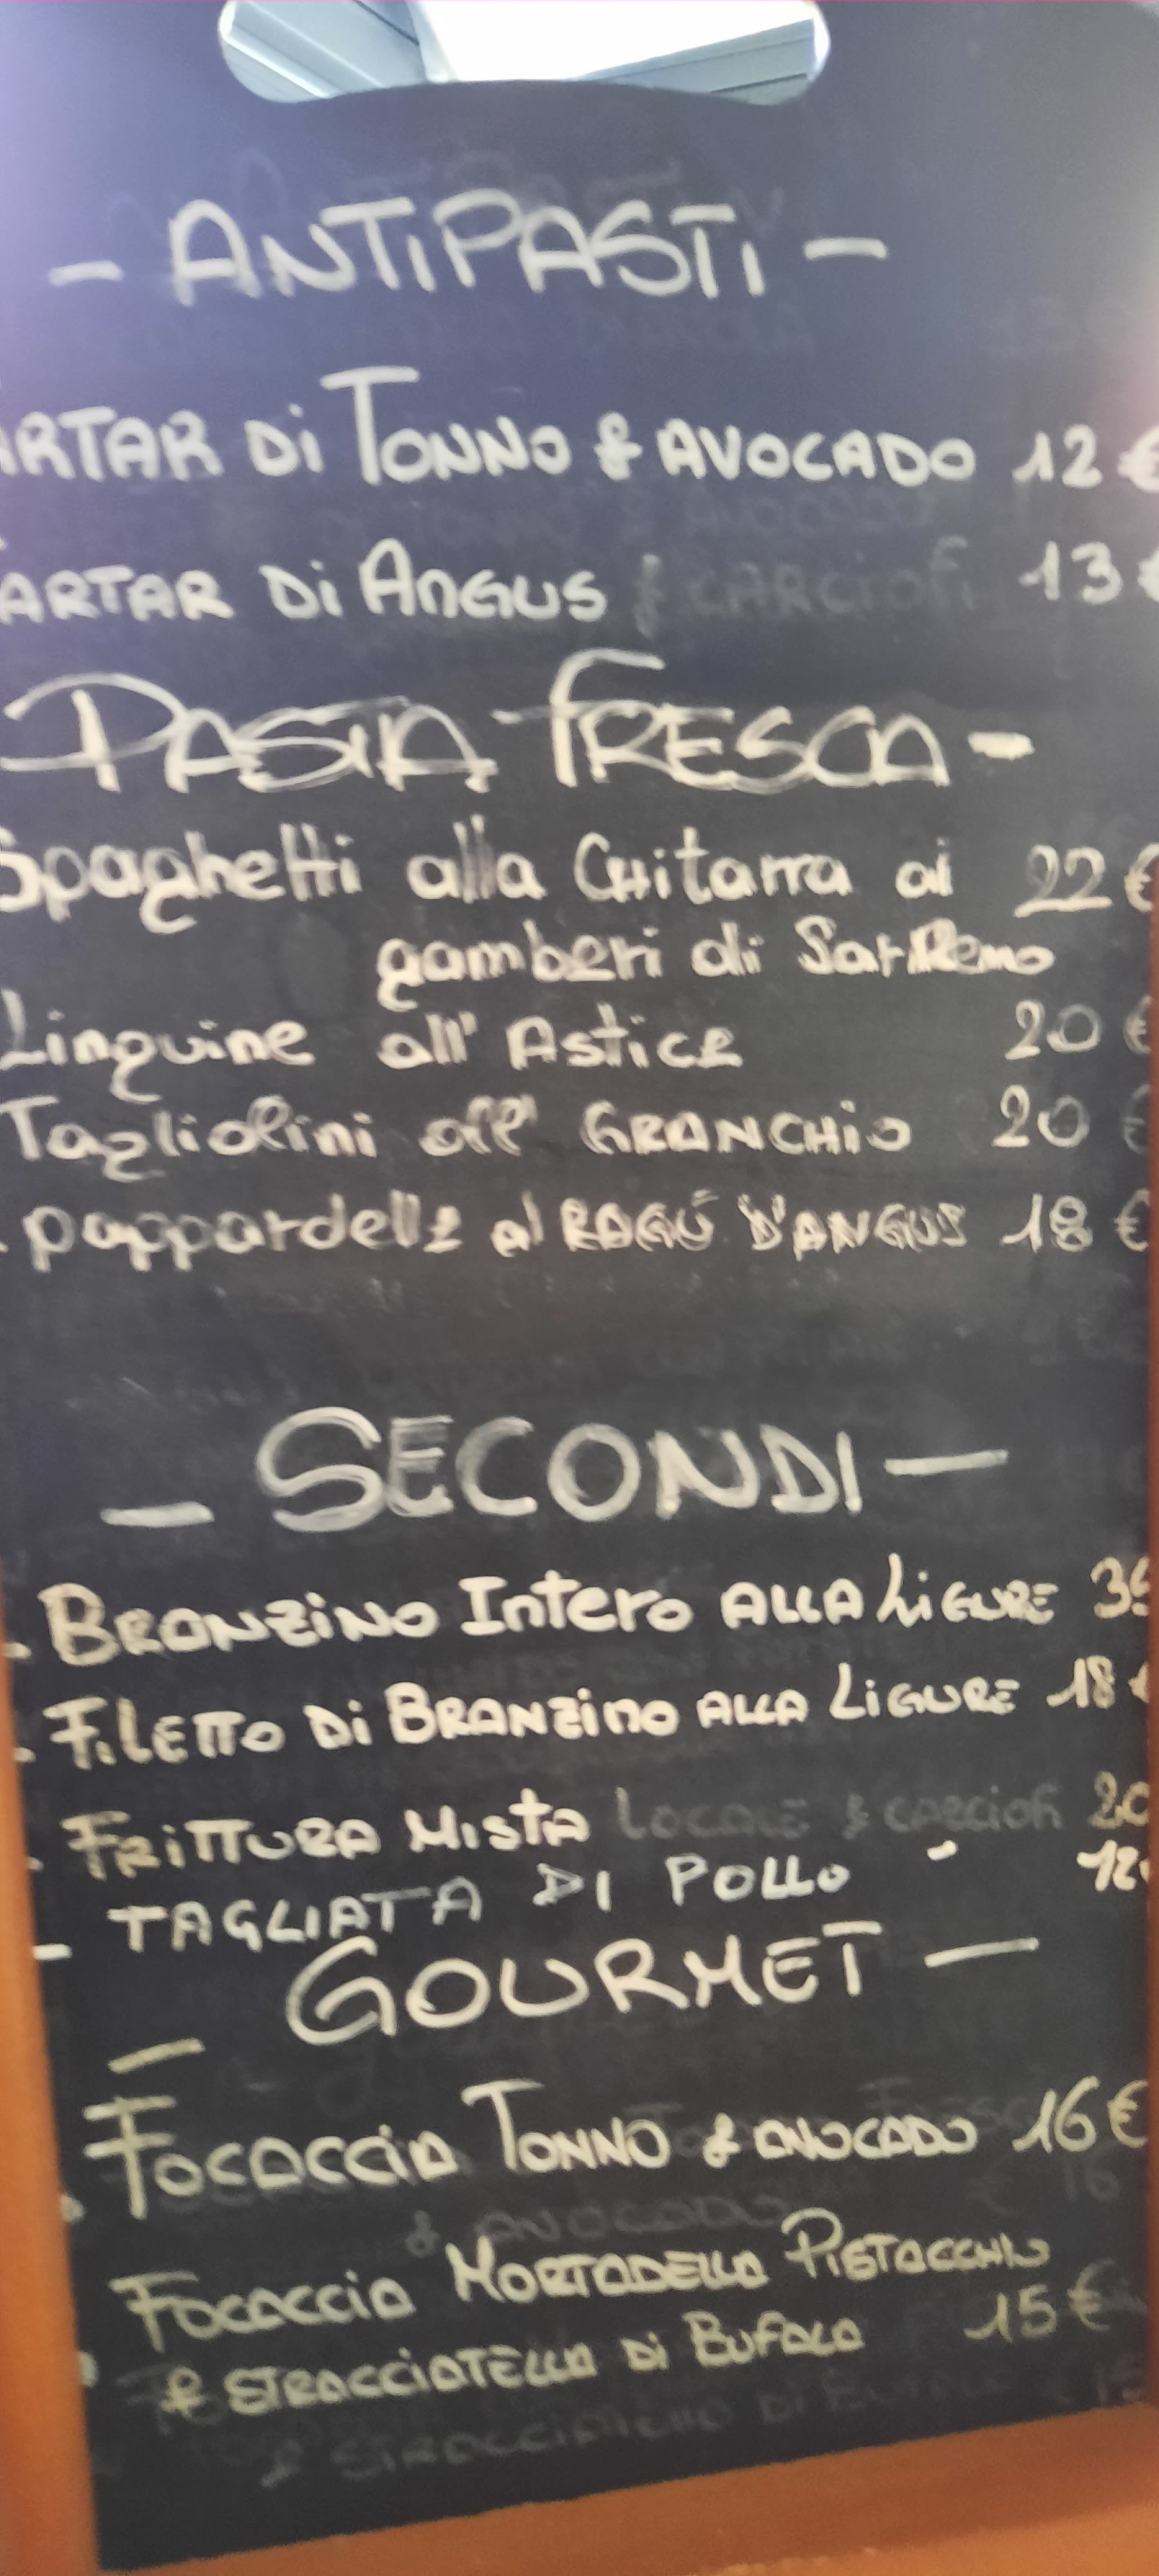 - ANTIPASTI -
ARTAR Di TONNO & AVOCADO 12 €
TARTAR Di ANGUS & CARCIOFi 13 €
PASTA FRESCA -
Spaghetti alla CHitarra ai 22 €
gamberi di SanRemo
Linguine all' Astice 20 €
Tagliolini all' GRANCHiO 20 €
. pappardelle al RAGÚ D'ANGUS 18 €
- SECONDI -
. BRANZiNO Intero ALLA LiGURE 35
. FiLETTO Di BRANZiNO ALLA LiGURE 18 €
. FRiTTURA MistA LOCALE & CARCIOFi 20
- TAGLIATA DI POLLO - 12
- GOURMET -
. FOCACCIA TONNO & AVOCADO 16 €
. FOCACCIA MORTADELLA PISTACCHIO
& STRACCIATELLA Di BUFALA 15 €